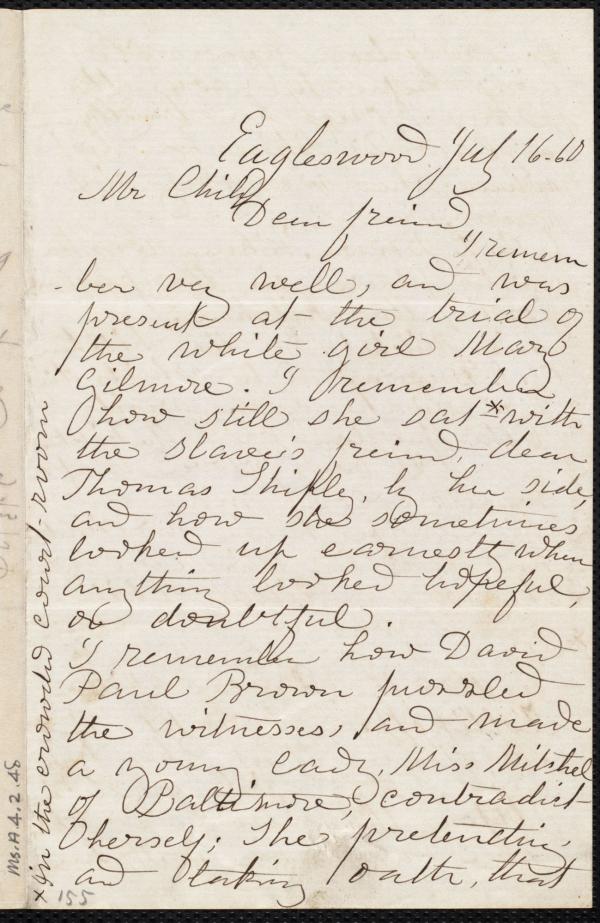 Eagleswood July 16-60
Mr Child
Dear friend
I remem
-ber very well, and was
present at the trial of
the white girl Mary
Gilmore. I remember
how still she sat * with
the slave's friend, dear
Thomas Shipley, by her side,
and how she sometimes
looked up earnestly when
anything looked hopeful,
or doubtful.
I remember how David
Paul Brown puzzled
the witnesses, and made
a young lady, Miss Mitchel
of Baltimore, contradict
herself; She pretending,
and taking oath, that
x in the crowded court-room
Ms.A.4.2.48
155